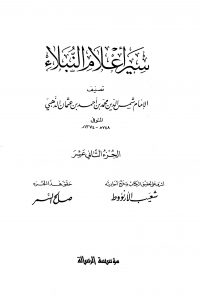 سير أعلام النبلاء
تصنيف
الإمام شمس الدين محمد بن أحمد بن عثمان الذهبي
المتوفى
٧٤٨هـ - ١٣٧٤م
الجزء الثاني عشر
أشرف على تحقيق الكتاب وخرج أحاديثه
حقق هذا الجزء
شعيب الأرنؤوط
صالح السمر
مؤسسة الرسالة